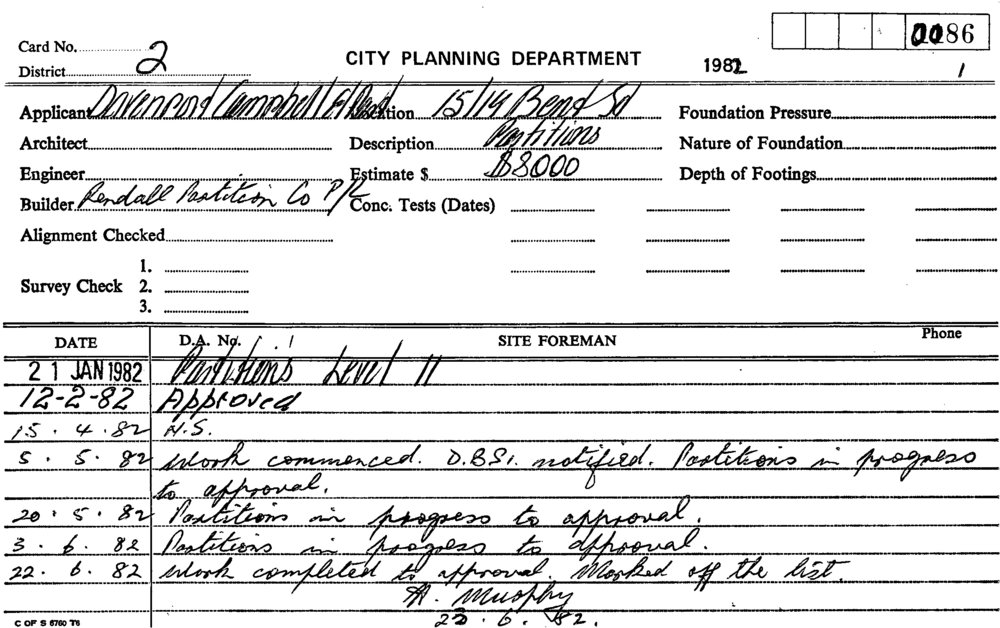 0086
Card No. 2
CITY PLANNING DEPARTMENT
1982
1
District
Applicant Davenport Campbell Location 15/19 Bent St Foundation Pressure
Architect Description Partitions Nature of Foundation
Engineer Estimate $ $8000 Depth of Footings
Builder Rendall Partition Co P/L Conc. Tests (Dates)
Alignment Checked
1.
Survey Check 2.
3.
DATE D.A. No. SITE FOREMAN Phone
21 JAN 1982 Partitions Level 11
12-2-82 Approved
15.4.82 N.S.
5.5.82 Work commenced. D.B.S.I. notified. Partitions in progress
to approval.
20.5.82 Partitions in progress to approval.
3.6.82 Partitions in progress to approval.
22.6.82 Work completed to approval. Marked off the list.
Murphy
.6.82.
C OF S 6760 T6